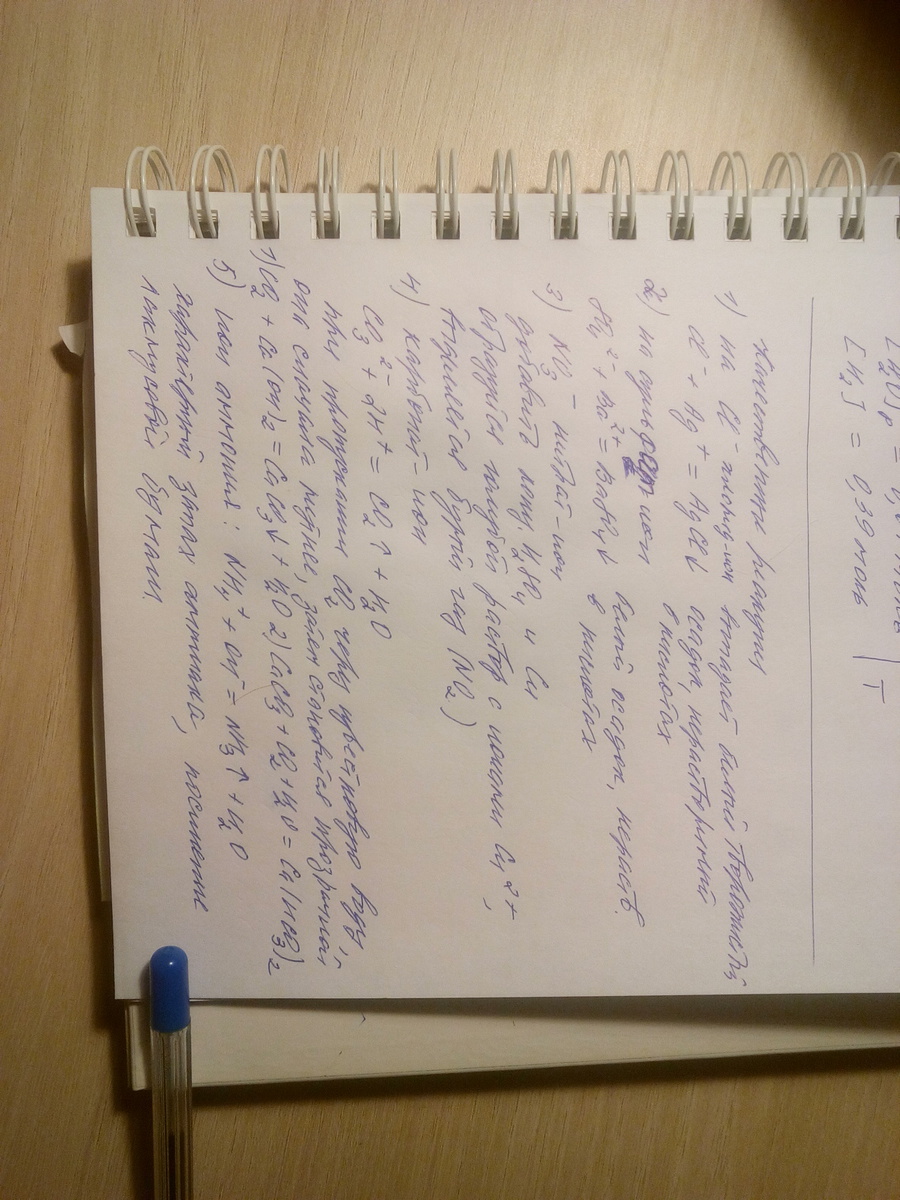 [H₂] = 0,39 моль | T
Качественные реакции
1) на Cl⁻ хлорид-ион выпадает белый творожистый
Cl⁻ + Ag⁺ = AgCl↓ осадок, нерастворимый
в кислотах
2) на ион
SO₄²⁻ + Ba²⁺ = BaSO₄↓ белый осадок, нераств.
в кислотах
3) NO₃⁻ нитрат-ион
добавить H₂SO₄ и Cu
образуется голубой раствор с ионами Cu²⁺,
выделяется бурый газ NO₂)
4) карбонат-ион
CO₃²⁻ + 2H⁺ = CO₂↑ + H₂O
при пропускании CO₂ через известковую воду,
она сначала затем становится прозрачной
1) CO₂ + Ca(OH)₂ = CaCO₃↓ + H₂O 2) CaCO₃ + CO₂ + H₂O = Ca(HCO₃)₂
5) ион аммония: NH₄⁺ + OH⁻ = NH₃↑ + H₂O
характерный запах аммиака, посинение
лакмусовой бумаги.